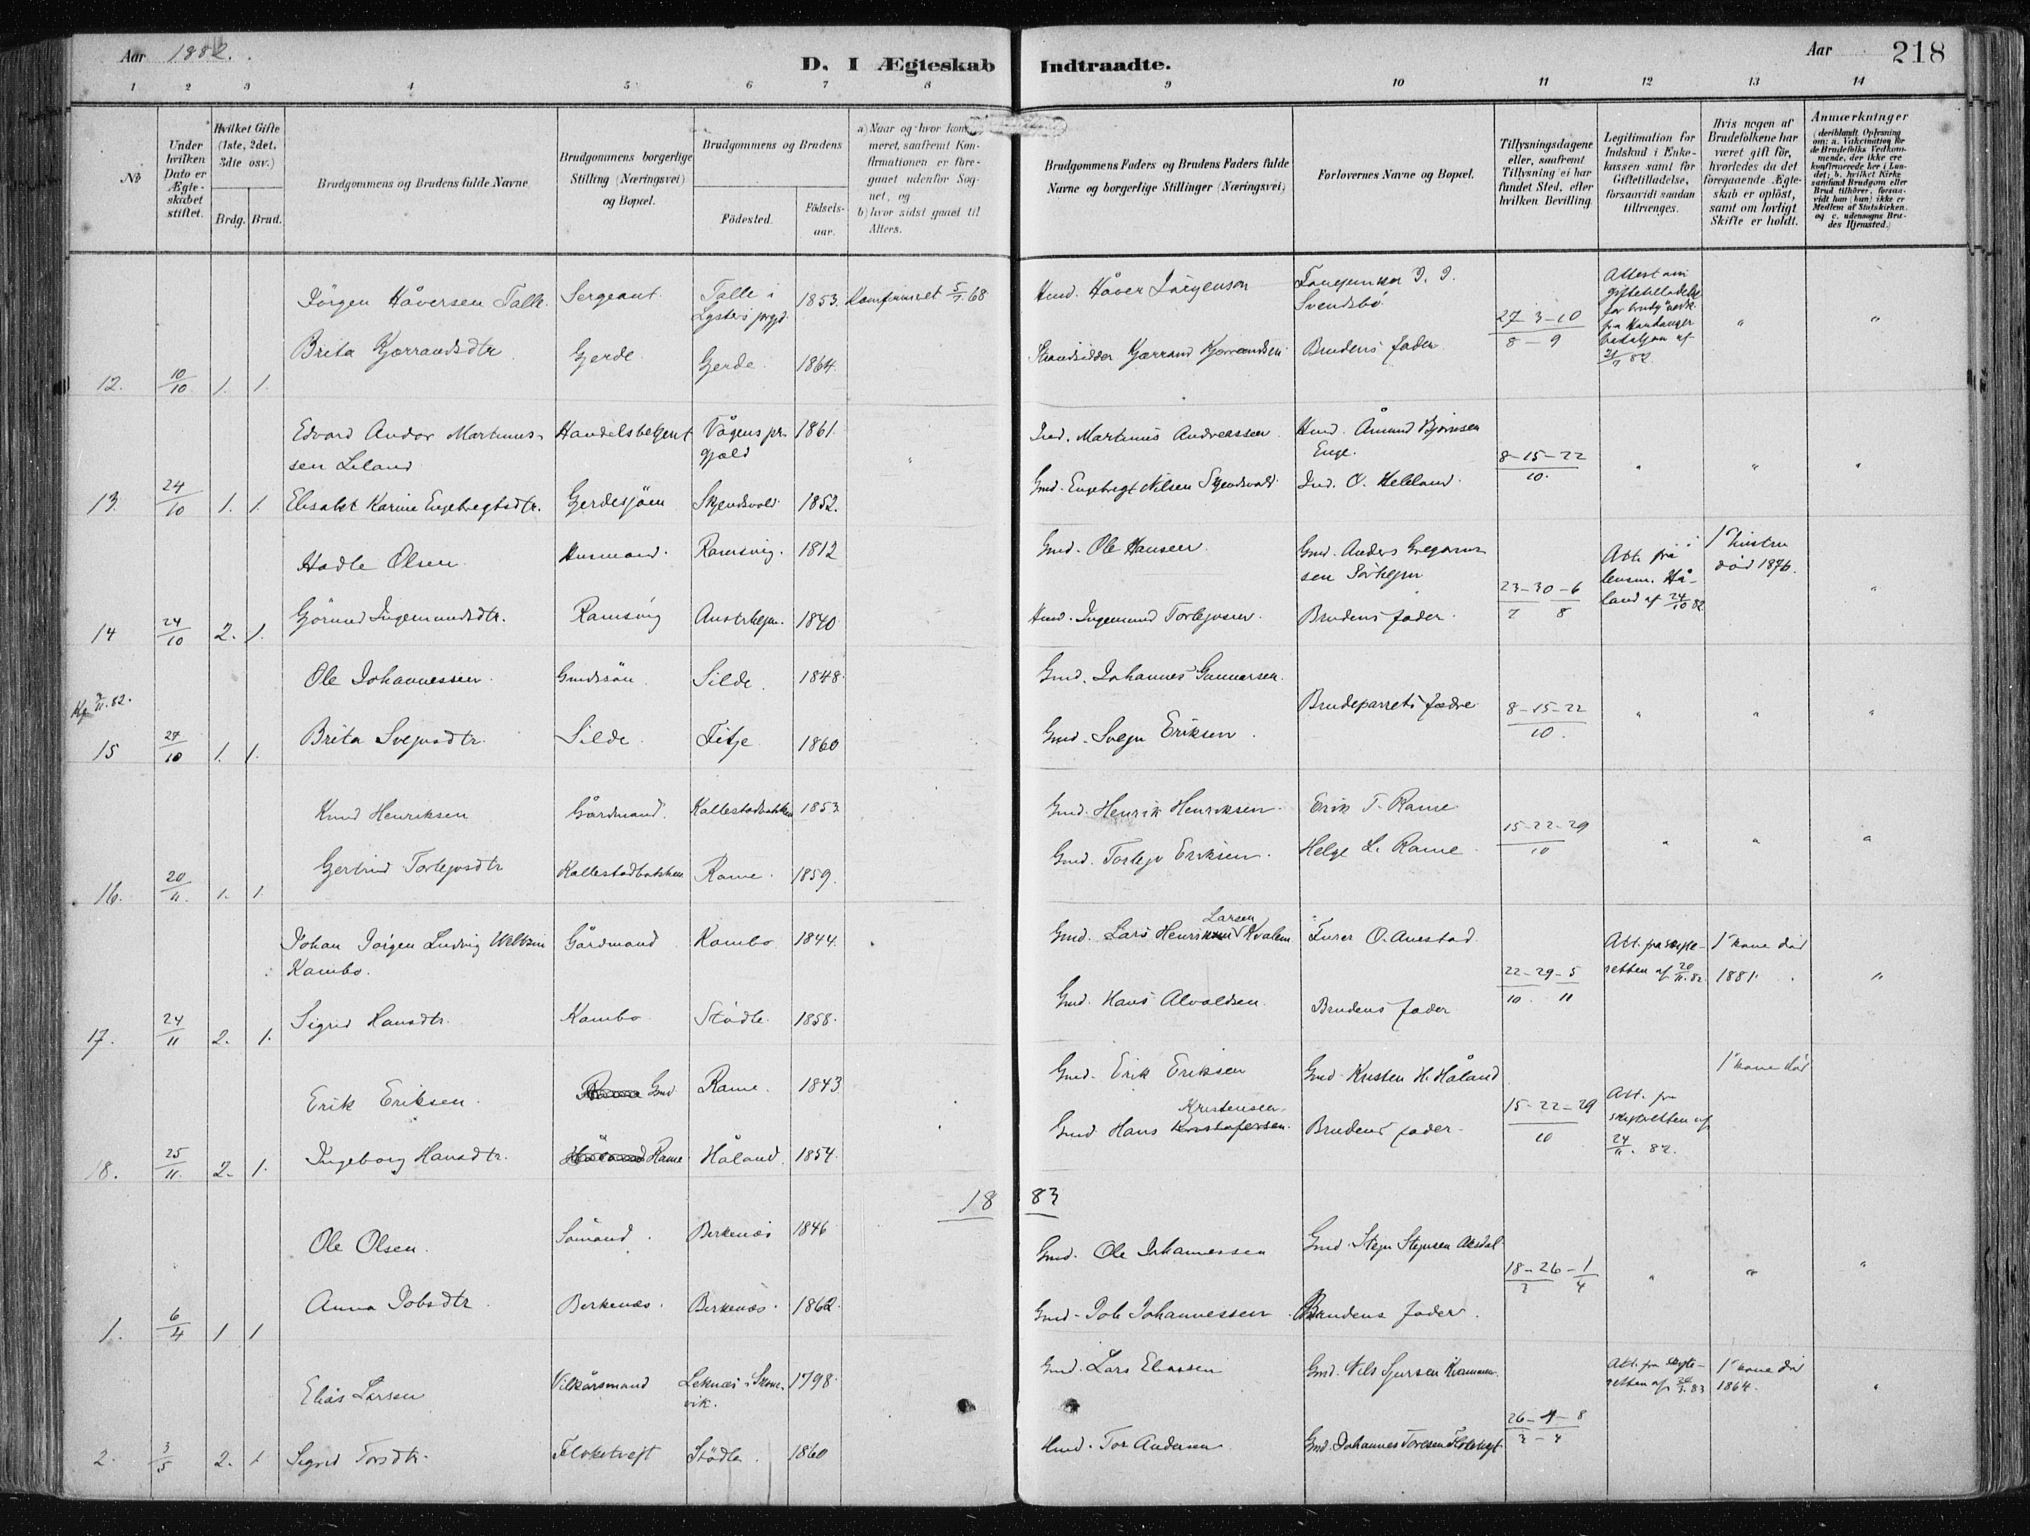 Aar 1882.
D. I Ægteskab Indtraadte.
Aar 218
1 2 3 4 5 6 7 8 9 10 11 12 13 14
No
Under hvilken Dato er Ægteskabet stiftet.
Hvilket Gifte (1ste, 2det, 3die osv.)
Brdg. Brud.
Brudgommens og Brudens fulde Navne
Brudgommens borgerlige Stilling (Næringsvei) og Bopæl.
Brudgommens og Brudens
Födested.
Födselsaar.
a) Naar og hvor kommeret, saafremt Konfirmationen er foregaaet udenfor Sognet, og
b) hvor sidst gaaet til Alters.
Brudgommens Faders og Brudens Faders fulde Navne og borgerlige Stillinger (Næringsvei)
Forlovernes Navne og Bopæl.
Tillysningsdagene eller, saafremt Tillysning ei har fundet Sted, efter hvilken Bevilling.
Legitimation for Indskud i Enkekassen samt for Giftetilladelse, forsaavidt saadan tiltrænges.
Hvis nogen af Brudefolkene har været gift för, hvorledes da det foregaaende Ægteskab er oplöst, samt om lovligt Skifte er holdt.
Anmærkninger
(deriblandt Oplysning om: a. Vakcination for de Brudefolks Vedkommende, der ikke ere konfirmerede her i Landet; b. hvilket Kirkesamfund Brudgom eller Brud tilhörer, forsaavidt han (hun) ikke er Medlem af Statskirken, og c. udensogns Brudes Hjemsted.)
12. 10/10 1. 1.
Jörgen Håversen Talle. Sergeant. Talle i Lysters prgd. 1853. Konfirmeret 5/7 68
Hmd. Håver Jörgenson
Svendsbö
27-3-10 / 8-9
Attest om giftetilladelse
82.
Brita Kjærrandsdtr Gjerde. Gjerde. 1864.
Strandsidder Kjærrand Kjærrandsen Brudens fader.
13. 24/10 1. 1.
Edvard Andor Martinussen Leland Handelsbetjent Vågens prgjæld 1861.
Ind. Martinus Andreassen. Hmd. Åmund Bjørnsen Enge.
8-15-22 / 10.
Elisabet Karine Engebregtsdtr. Gerdesjöen Skjendsvold 1852.
Gmd. Engebregt Nilsen Ind. O. Helland.
14 24/10 2. 1.
Hadle Olsen Husmand. Ramsvig. 1812
Gmd. Ole Hansen. Gmd. Anders Gregoriussen
23-30-6 / 7 8
Att. fra lensm. Håland af 24/10 82
1' hustru död 1876.
Gjörund Ingemundsdtr. Ramsvig 1840
Hmd. Ingemund Torlejvsen. Brudens fader.
Kp. 3/11. 82.
15 27/10 1. 1.
Ole Johannessen. Gmdssön. Silde. 1848.
Gmd. Johannes Gunnarsen.
Brudeparrets fædre 8-15-22 / 10.
Brita Svejnsdtr. Silde. Fitje 1860
Gmd. Svejn Eriksen.
16. 20/11. 1. 1.
Knud Henriksen Gårdmand. Kallestadbakken 1853
Gmd. Henrik Henriksen. Erik T. Rame.
15-22-29 / 10
Gertrud Torlejvsdtr Kallestadbakken Rame. 1859.
Gmd. Torlejv Eriksen. Helge L. Rame.
17. 24/11 2. 1.
Johan Jörgen Ludvig Kambo. Gårdmand Kambo. 1844.
Gmd. Lars Larsen Kvalem Furer O. Anestad.
22-29-5 / 10. 11
Att. fra skifteretten af 20/11. 82
1' kone död 1881.
Sigrid Hansdtr. Kambo Stödle. 1858.
Gmd. Hans Alvaldsen. Brudens fader
18. 25/11. 2. 1.
Erik Eriksen. Gmd Rame. 1843
Gmd. Erik Eriksen Gmd. Kristen H. Håland
15-22-29 / 10
Att. fra skifteretten af 24/11. 82.
1' kone död
Ingeborg Hansdtr. Håland Rame Håland. 1854.
Gmd Hans Kristensen Kristofersen. Brudens fader.
1883
1. 6/4 1 1
Ole Olsen. Sömand. Berkenæs 1846
Gmd. Ole Johannessen Gmd. Stejn Stejnsen Aksdal
18-26-1 / 3 4
Anna Jobsdtr. Berkenæs. Berkenæs. 1862.
Gmd. Job Johannessen Brudens fader.
2. 3/5 2. 1
Elias Larsen Vilkårsmand Leknæs i Skonevik. 1798.
Gmd. Lars Eliassen Gmd. Nils Sjursen
26-4-8 / 3-4
Att. fra skifteretten af 83
1' kone död 1864.
Sigrid Torsdtr. Stödle. 1860
Hmd. Tor Andersen. Gmd. Johannes Toresen